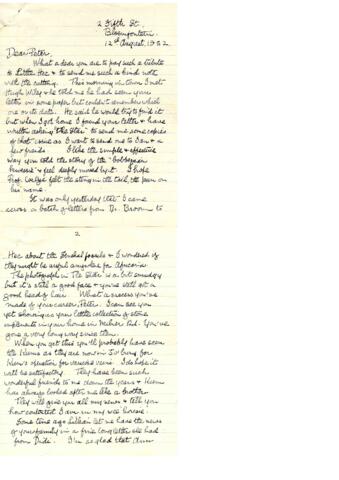 2 Fifth St.
Bloemfontein.
12th August, 1952.
Dear Peter,
What a dear you are to pay such a tribute
to Little Hec & to send me such a kind note
with the cutting. This morning in town I met
Hugh Wiley & he told me he had seen your
letter in some paper but couldn't remember which
one or its date. He said he would try to find it
but when I got home I found your letter & have
written asking "The Star" to send me some copies
of that issue as I want to send me to Ian & a
few friends. I like the simple & effective
way you told the story of the
& feel deeply moved by it. I hope
Prof. felt the sting in the tail, the
his name.
It was only yesterday that I came
across a batch of letters from Dr. Broom to
2.
Hec about the fossils & I wondered if
they might be useful anywhere for Africana
The photograph in The Star is a bit smudgy
but it's still a good face & you've still got a
good head of hair. What a success you've
made of your career, Peter. I can see you
yet showing us your little collection of stone
implements in your home in Milner Rd. You've
gone a very long way since then.
When you get this you'll probably have seen
the as they are now in Jo'burg for
operation for varicose veins. I do hope it
will be satisfactory. They have been such
wonderful friends to me down the years &
has always looked after me like a brother.
They will give you all my news & tell you
how contented I am in my wee house.
Some time ago Lilian let me have the news
of your family in a fine long letter she had
from Dids. I'm so glad that